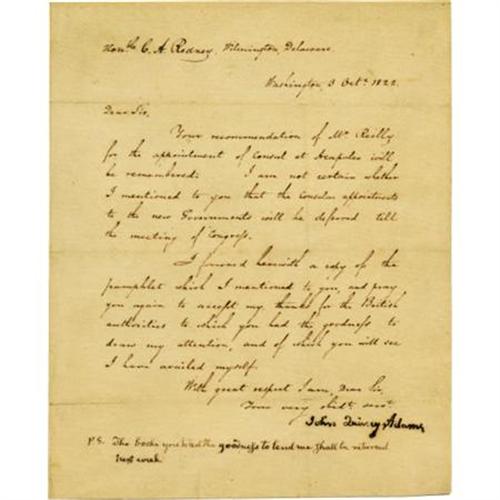 Hon'ble C. A. Rodney, Wilmington, Delaware.
Washington, 3 Octr. 1822.
Dear Sir,
Your recommendation of Mr. Reilly
for the appointment of Consul at Acapulco will
be remembered. I am not certain whether
I mentioned to you that the Consular appointments
to the new Governments will be deferred till
the meeting of Congress.
I forward herewith a copy of the
pamphlet which I mentioned to you, and pray
you again to accept my thanks for the British
authorities to which you had the goodness to
draw my attention, and of which you will see
I have availed myself.
With great respect I am, Dear Sir,
Your very obedt. servt.
John Quincy Adams
P.S. The books you had the goodness to lend me shall be returned
next week